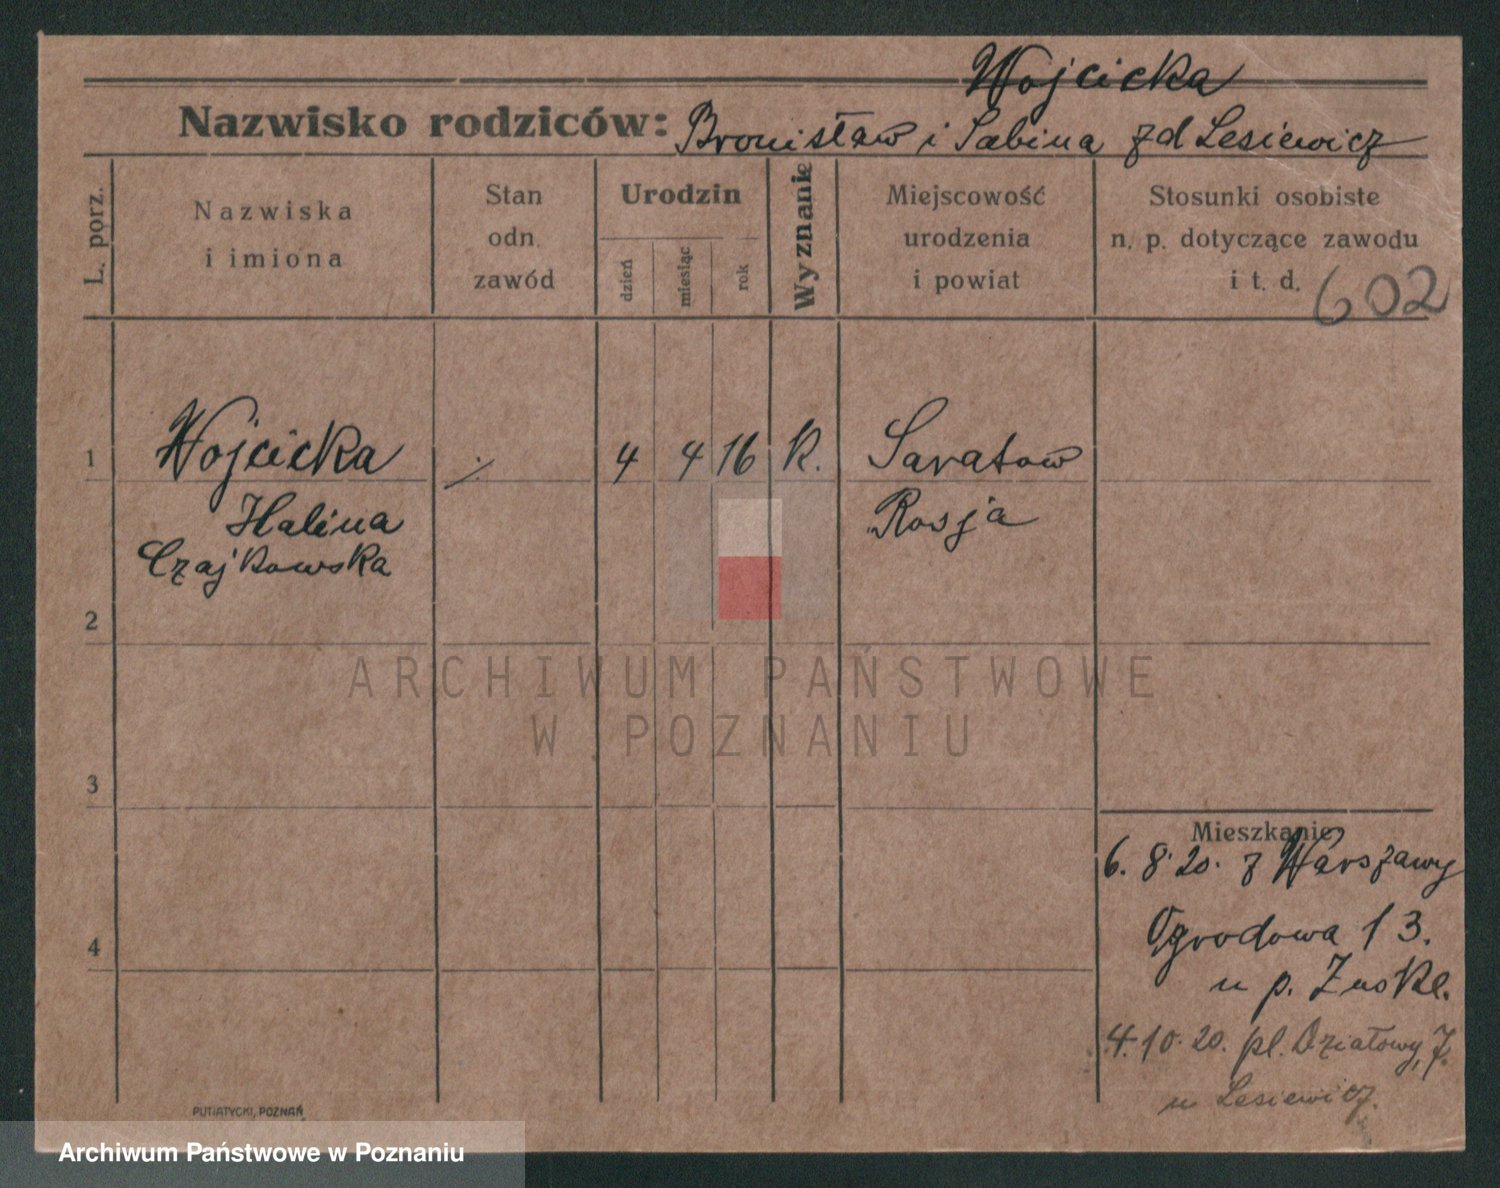 Wojcicka
Nazwisko rodziców: Bronisław i Sabina zd Lesiewicz
L. porz.
Nazwiska
i imiona
Stan
odn.
zawód
Urodzin
dzień
miesiąc
rok
Wyznanie
Miejscowość
urodzenia
i powiat
Stosunki osobiste
n. p. dotyczące zawodu
i t. d.
602
1 Wojcicka ./. 4 4 16 K. Saratow
Halina Rosja
Czajkowska
2
ARCHIWUM PAŃSTWOWE
W POZNANIU
3
Mieszkanie
6. 8. 20. z Warszawy
Ogrodowa 13.
u p. Zuske.
4
4. 10. 20. pl. Działowy, 7.
u Lesiewicz.
PUTIATYCKI, POZNAŃ
Archiwum Państwowe w Poznaniu